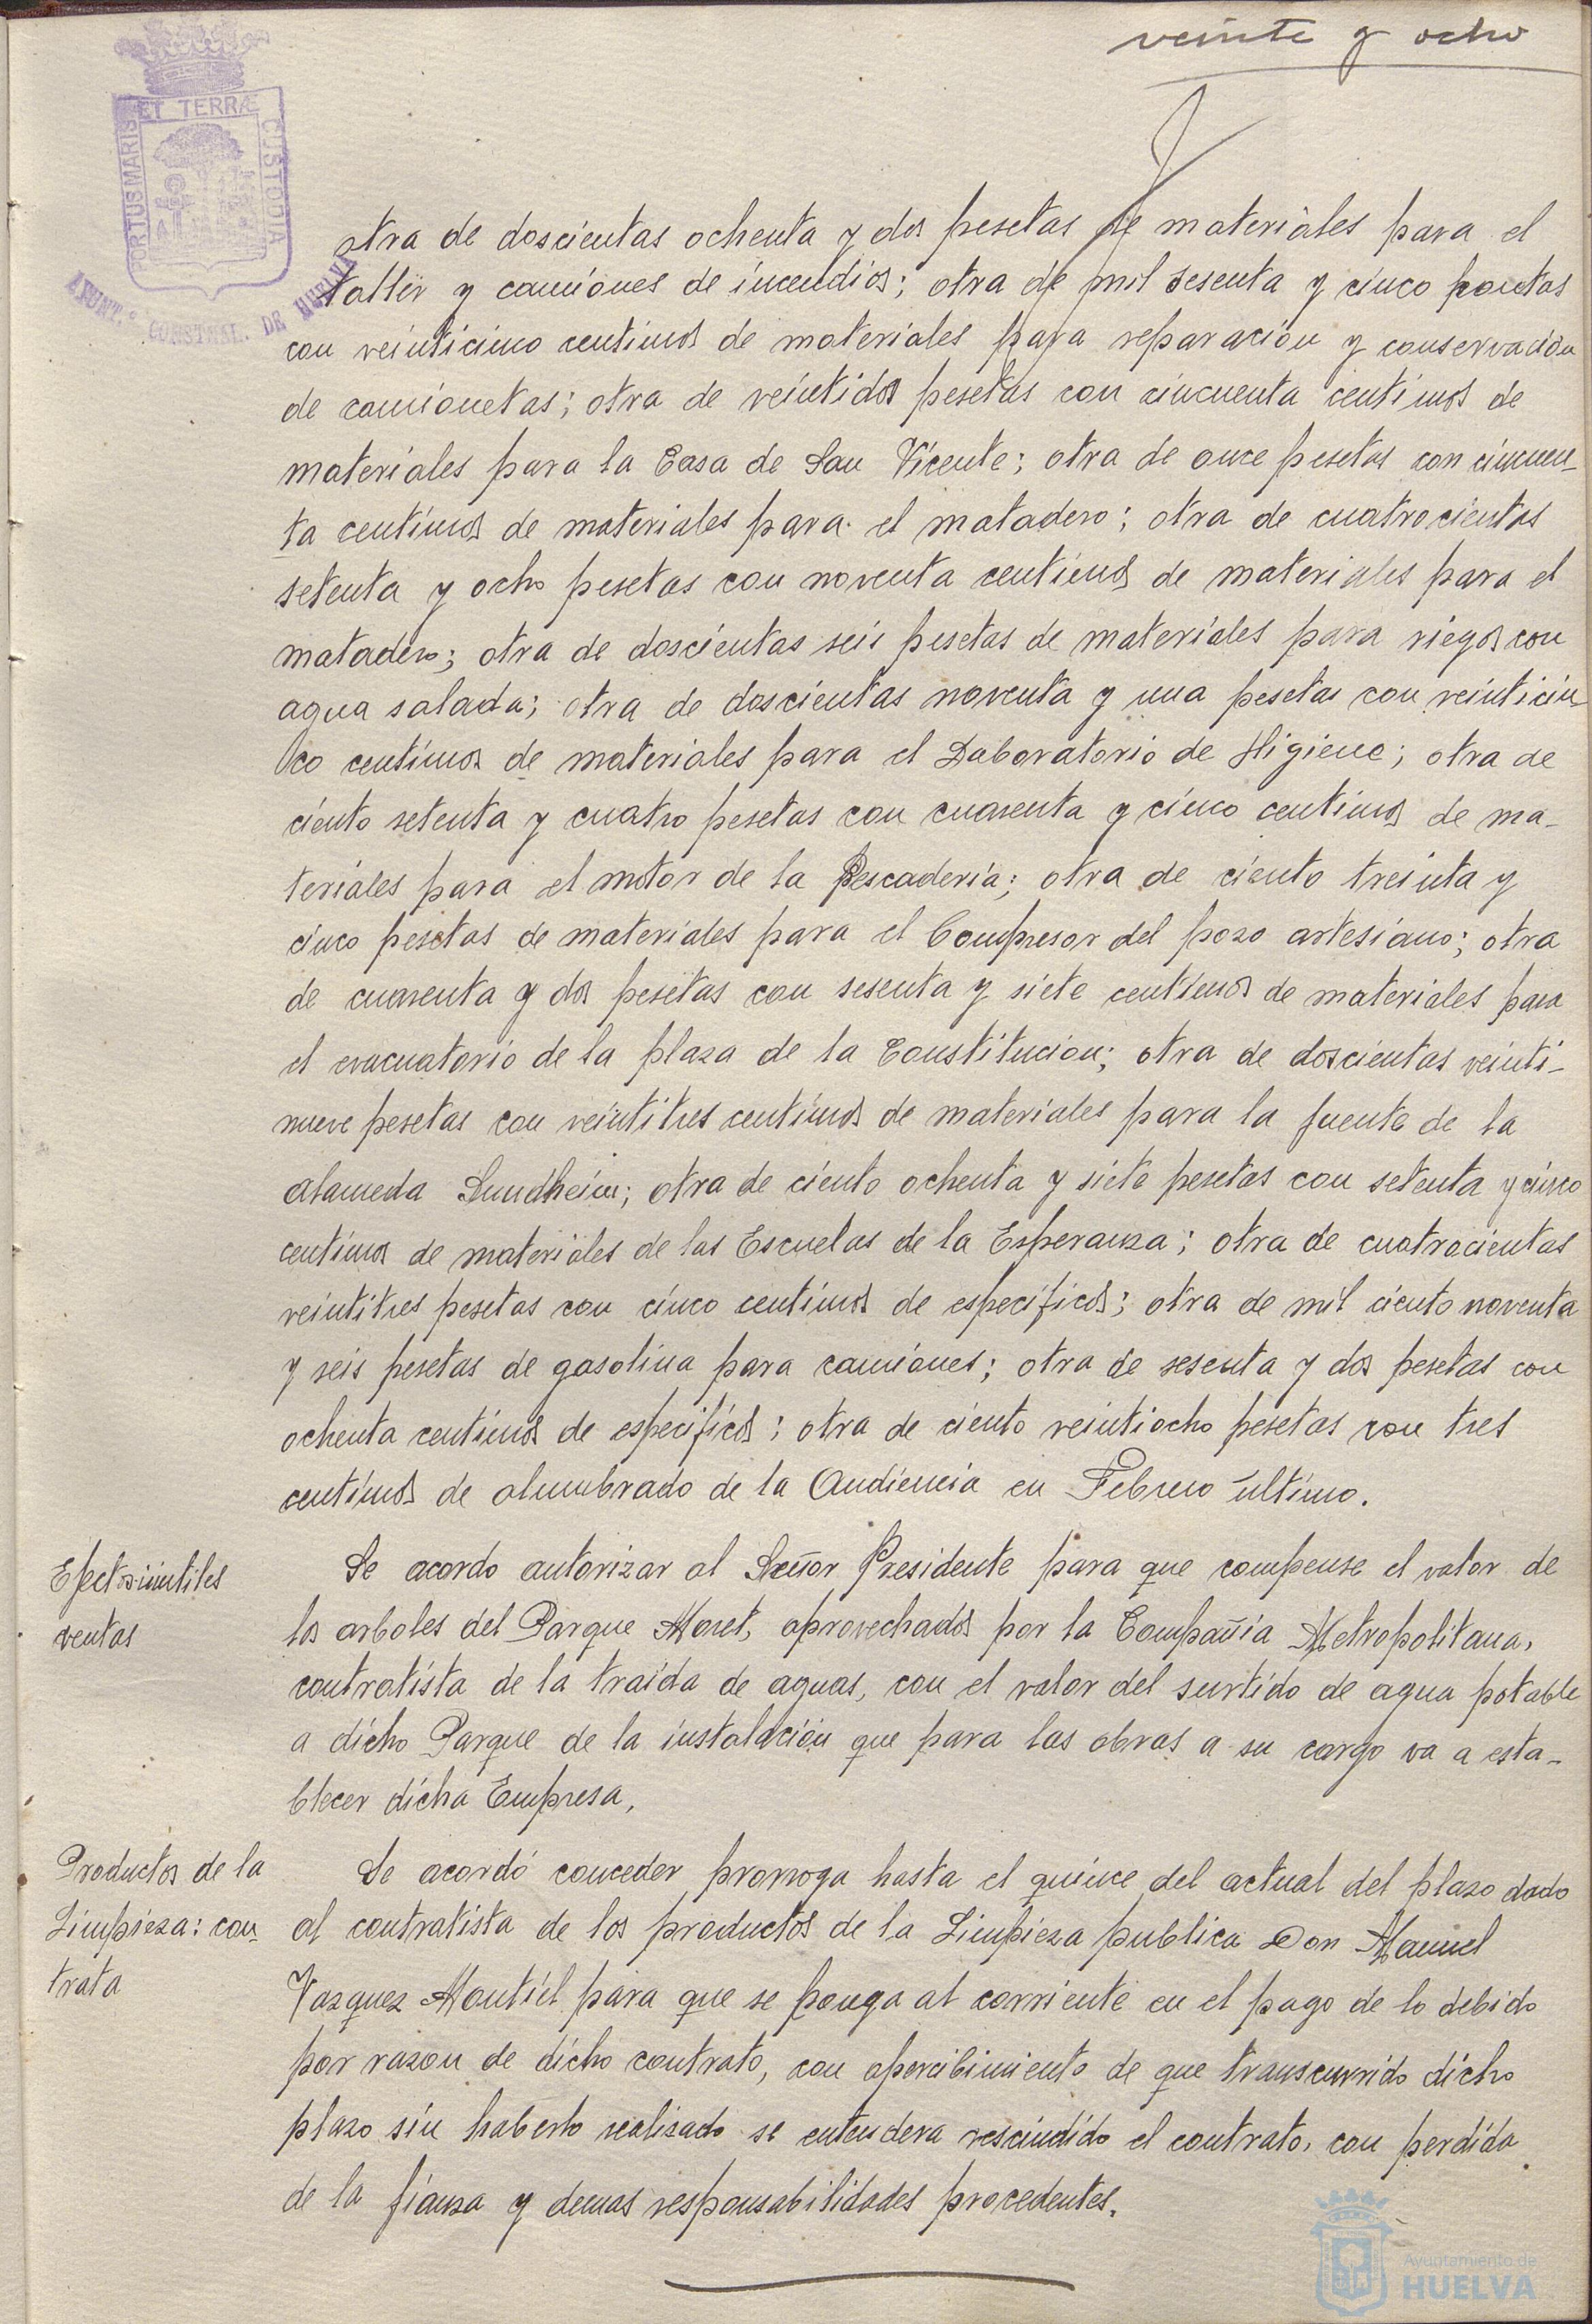 veinte y ocho
PORTUS MARIS ET TERRÆ CUSTODIA
AYUNT.º CONSTNAL. DE HUELVA
otra de doscientas ochenta y dos pesetas de materiales para el
taller y camiones de incendios; otra de mil sesenta y cinco pesetas
con veinticinco centimos de materiales para reparación y conservación
de camionetas; otra de veintidos pesetas con cincuenta centimos de
materiales para la Casa de San Vicente; otra de once pesetas con cincuen-
ta centimos de materiales para el matadero; otra de cuatrocientas
setenta y ocho pesetas con noventa centimos de materiales para el
matadero; otra de doscientas seis pesetas de materiales para riegos con
agua salada; otra de doscientas noventa y una pesetas con veinticin-
co centimos de materiales para el Laboratorio de Higiene; otra de
ciento setenta y cuatro pesetas con cuarenta y cinco centimos de ma-
teriales para el motor de la Pescaderia; otra de ciento treinta y
cinco pesetas de materiales para el Compresor del pozo artesiano; otra
de cuarenta y dos pesetas con sesenta y siete centimos de materiales para
el evacuatorio de la plaza de la Constitucion; otra de doscientas veinti-
nueve pesetas con veintitres centimos de materiales para la fuente de la
alameda Sundheim; otra de ciento ochenta y siete pesetas con setenta y cinco
centimos de materiales de las Escuelas de la Esperanza; otra de cuatrocientas
veintitres pesetas con cinco centimos de especificos; otra de mil ciento noventa
y seis pesetas de gasolina para camiones; otra de sesenta y dos pesetas con
ochenta centimos de especificos; otra de ciento veintiocho pesetas con tres
centimos de alumbrado de la Audiencia en Febrero ultimo.
Efectos inutiles
ventas
Se acordo autorizar al Señor Presidente para que compense el valor de
los arboles del Parque Moret, aprovechados por la Compañia Metropolitana,
contratista de la traida de aguas, con el valor del surtido de agua potable
a dicho Parque de la instalación que para las obras a su cargo va a esta-
blecer dicha Empresa.
Productos de la
Limpieza: con-
trata
Se acordó conceder prorroga hasta el quince del actual del plazo dado
al contratista de los productos de la Limpieza publica Don Manuel
Vazquez Montiel para que se ponga al corriente en el pago de lo debido
por razon de dicho contrato, con apercibimiento de que transcurrido dicho
plazo sin haberlo realizado se entendera rescindido el contrato, con perdida
de la fianza y demas responsabilidades procedentes.
Ayuntamiento de
HUELVA